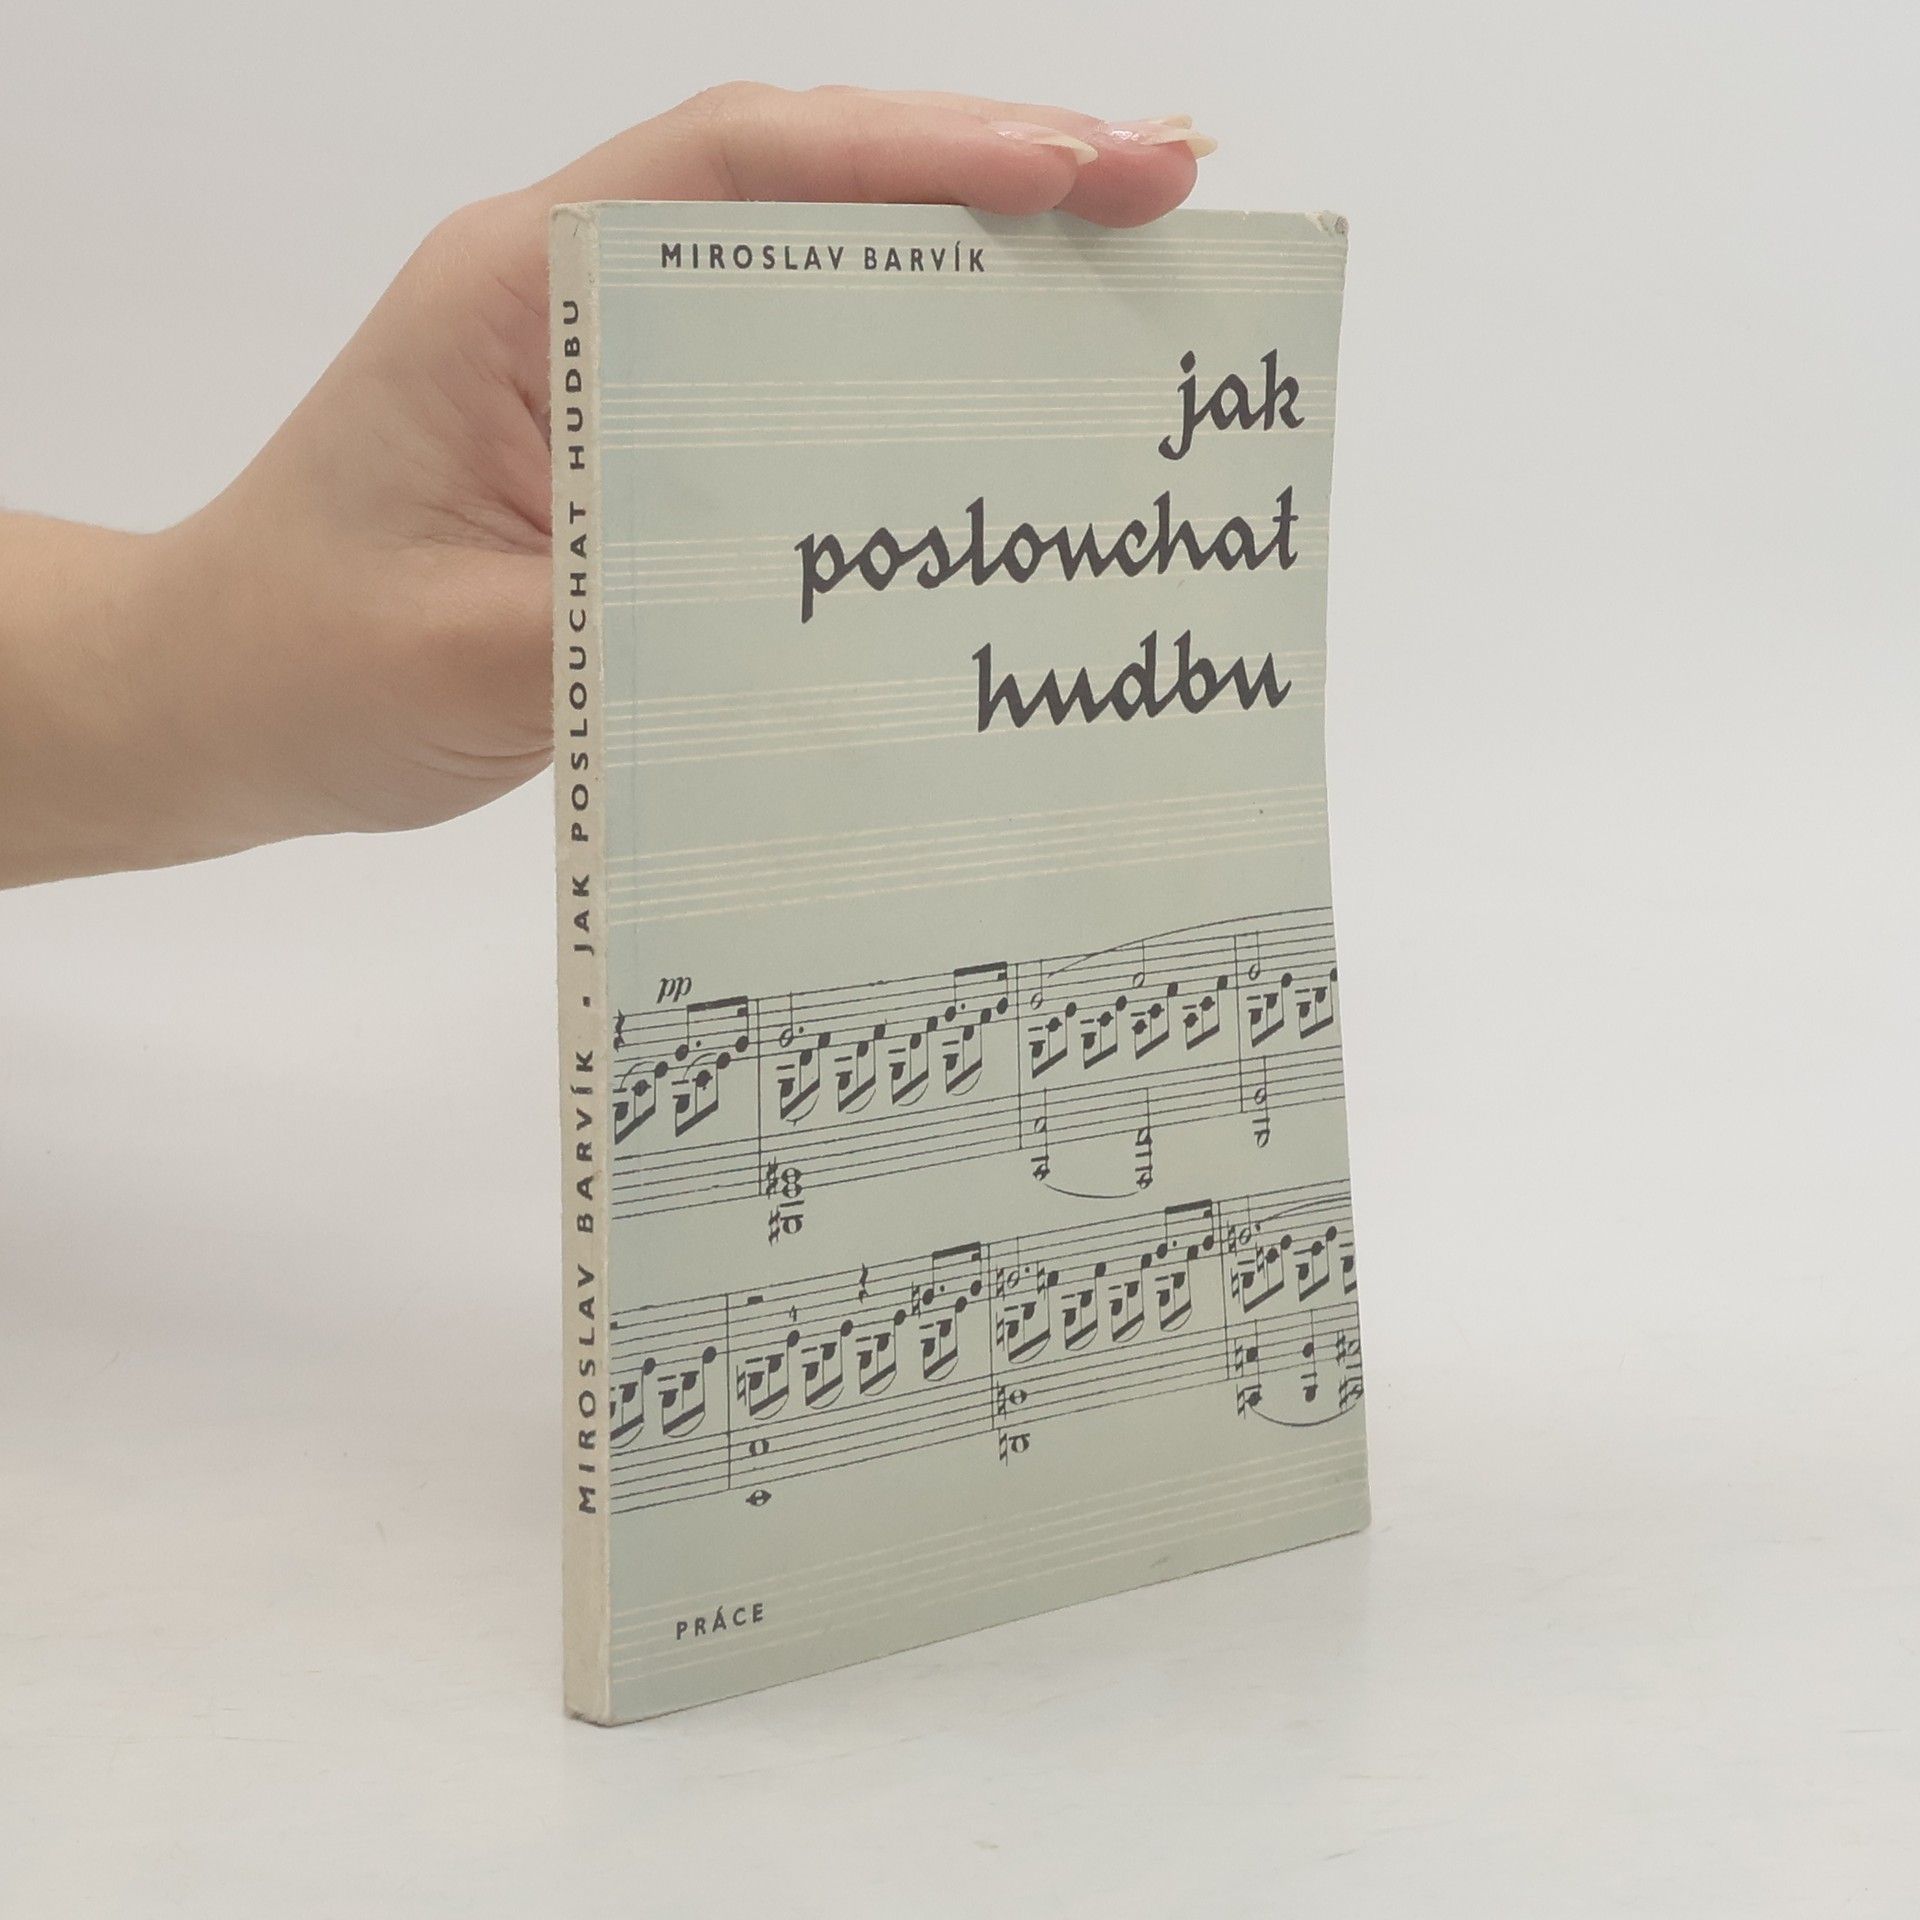 MIROSLAV BARVÍK
jak
poslouchat
hudbu
pp
PRÁCE
MIROSLAV BARVÍK . JAK POSLOUCHAT HUDBU